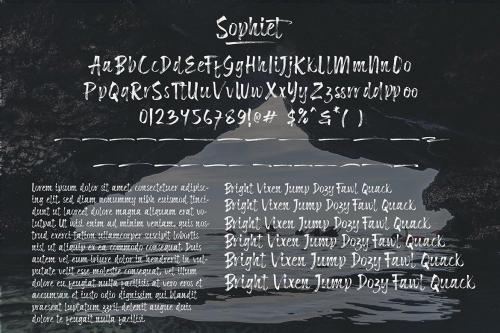 Sophiet
AaBbCcDdEeFfGgHhIiJjKkLlMmNnOo
PpQqRrSsTtUuVvWwXxYyZzssrrddppoo
0123456789!@# $%^&*( )
Lorem ipsum dolor sit amet, consectetuer adipisc-
ing elit, sed diam nonummy nibh euismod tinci-
dunt ut laoreet dolore magna aliquam erat vo-
lutpat. Ut wisi enim ad minim veniam, quis nos-
trud exerci tation ullamcorper suscipit lobortis
nisl ut aliquip ex ea commodo consequat. Duis
autem vel eum iriure dolor in hendrerit in vul-
putate velit esse molestie consequat, vel illum
dolore eu feugiat nulla facilisis at vero eros et
accumsan et iusto odio dignissim qui blandit
praesent luptatum zzril delenit augue duis
dolore te feugait nulla facilisi.
Bright Vixen Jump Dozy Fawl Quack
Bright Vixen Jump Dozy Fawl Quack
Bright Vixen Jump Dozy Fawl Quack
Bright Vixen Jump Dozy Fawl Quack
Bright Vixen Jump Dozy Fawl Quack
Bright Vixen Jump Dozy Fawl Quack